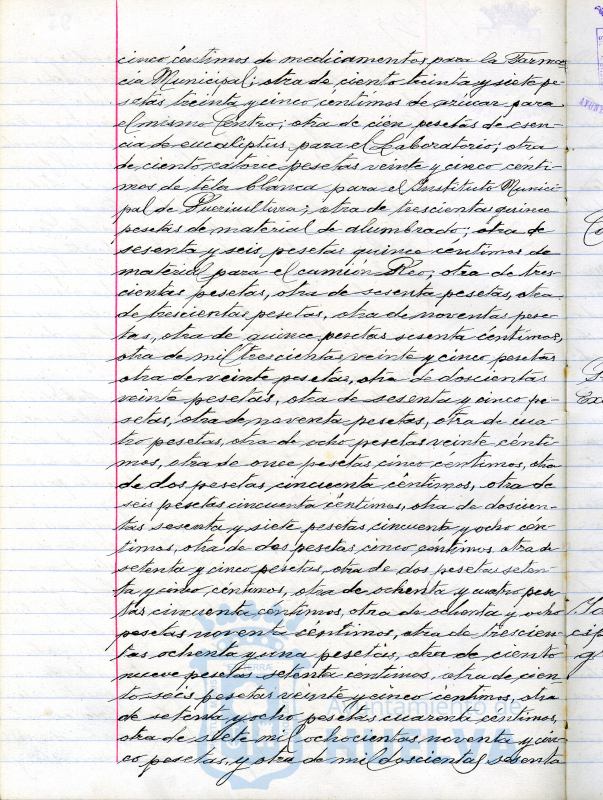 cinco céntimos de medicamentos para la Farma-
cia Municipal; otra de ciento treinta y siete pe-
setas treinta y cinco céntimos de azúcar para
el mismo Centro; otra de cien pesetas de esen-
cia de eucaliptus para el Laboratorio; otra
de ciento catorce pesetas veinte y cinco cénti-
mos de tela blanca para el Instituto Munici-
pal de Puericultura; otra de trescientas quince
pesetas de material de alumbrado; otra de
sesenta y seis pesetas quince céntimos de
material para el camión Reo; otra de tres-
cientas pesetas, otra de sesenta pesetas, otra
de trescientas pesetas, otra de noventa pese-
tas, otra de quince pesetas sesenta céntimos,
otra de mil trescientas veinte y cinco pesetas
otra de veinte pesetas, otra de doscientas
veinte pesetas, otra de sesenta y cinco pe-
setas, otra de noventa pesetas, otra de cua-
tro pesetas, otra de ocho pesetas veinte cénti-
mos, otra de once pesetas cinco céntimos, otra
de dos pesetas cincuenta céntimos, otra de
seis pesetas cincuenta céntimos, otra de doscien-
tas sesenta y siete pesetas cincuenta y ocho cén-
timos, otra de dos pesetas cinco céntimos, otra de
setenta y cinco pesetas, otra de dos pesetas seten-
ta y cinco céntimos, otra de ochenta y cuatro pese-
tas cincuenta céntimos, otra de ochenta y ocho
pesetas noventa céntimos, otra de trescien-
tas ochenta y una pesetas, otra de ciento
nueve pesetas setenta céntimos, otra de cien-
to seis pesetas veinte y cinco céntimos, otra
de setenta y ocho pesetas cuarenta céntimos,
otra de siete mil ochocientas noventa y cin-
co pesetas, y otra de mil doscientas sesenta
Ayuntamiento de
HUELVA